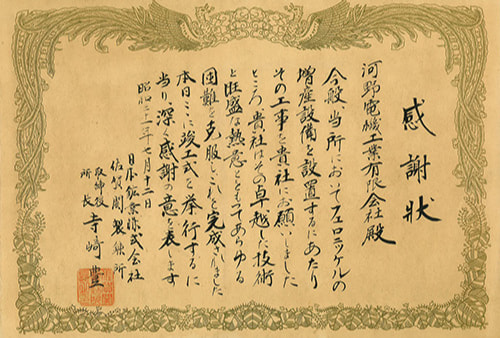 感謝狀
河野電機工業有限会社殿
今般当所においてフェロニッケルの
増産設備を設置するにあたり
その工事を貴社にお願いしました
ところ貴社はその卓越した技術
と旺盛な熱意とをもつてあらゆる
困難を克服しこれを完成されました
本日ここに竣工式を挙行するに
当り深く感謝の意を表します
昭和三十二年七月十二日
日本鉱業株式会社
佐賀関製錬所
取締役
所長 寺崎 豊